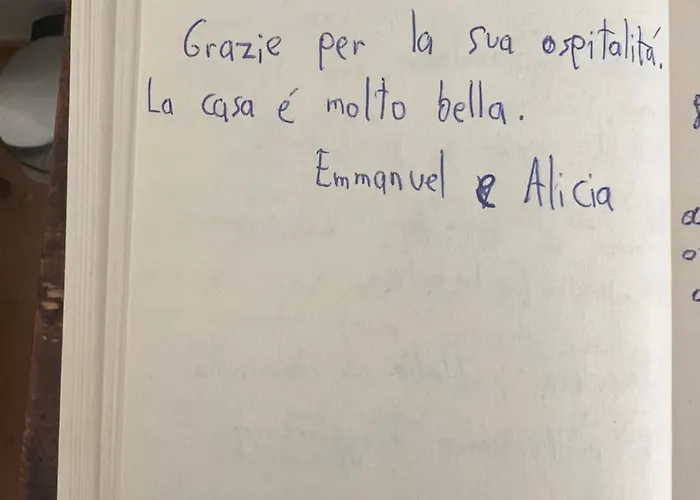 Grazie per la sua ospitalitá.
La casa é molto bella.
Emmanuel e Alicia